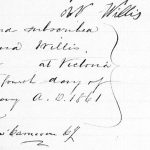 W Willis
and subscribed
and Willis.
at Victoria
fourth day of
ary A.D. 1861
Cameron JP